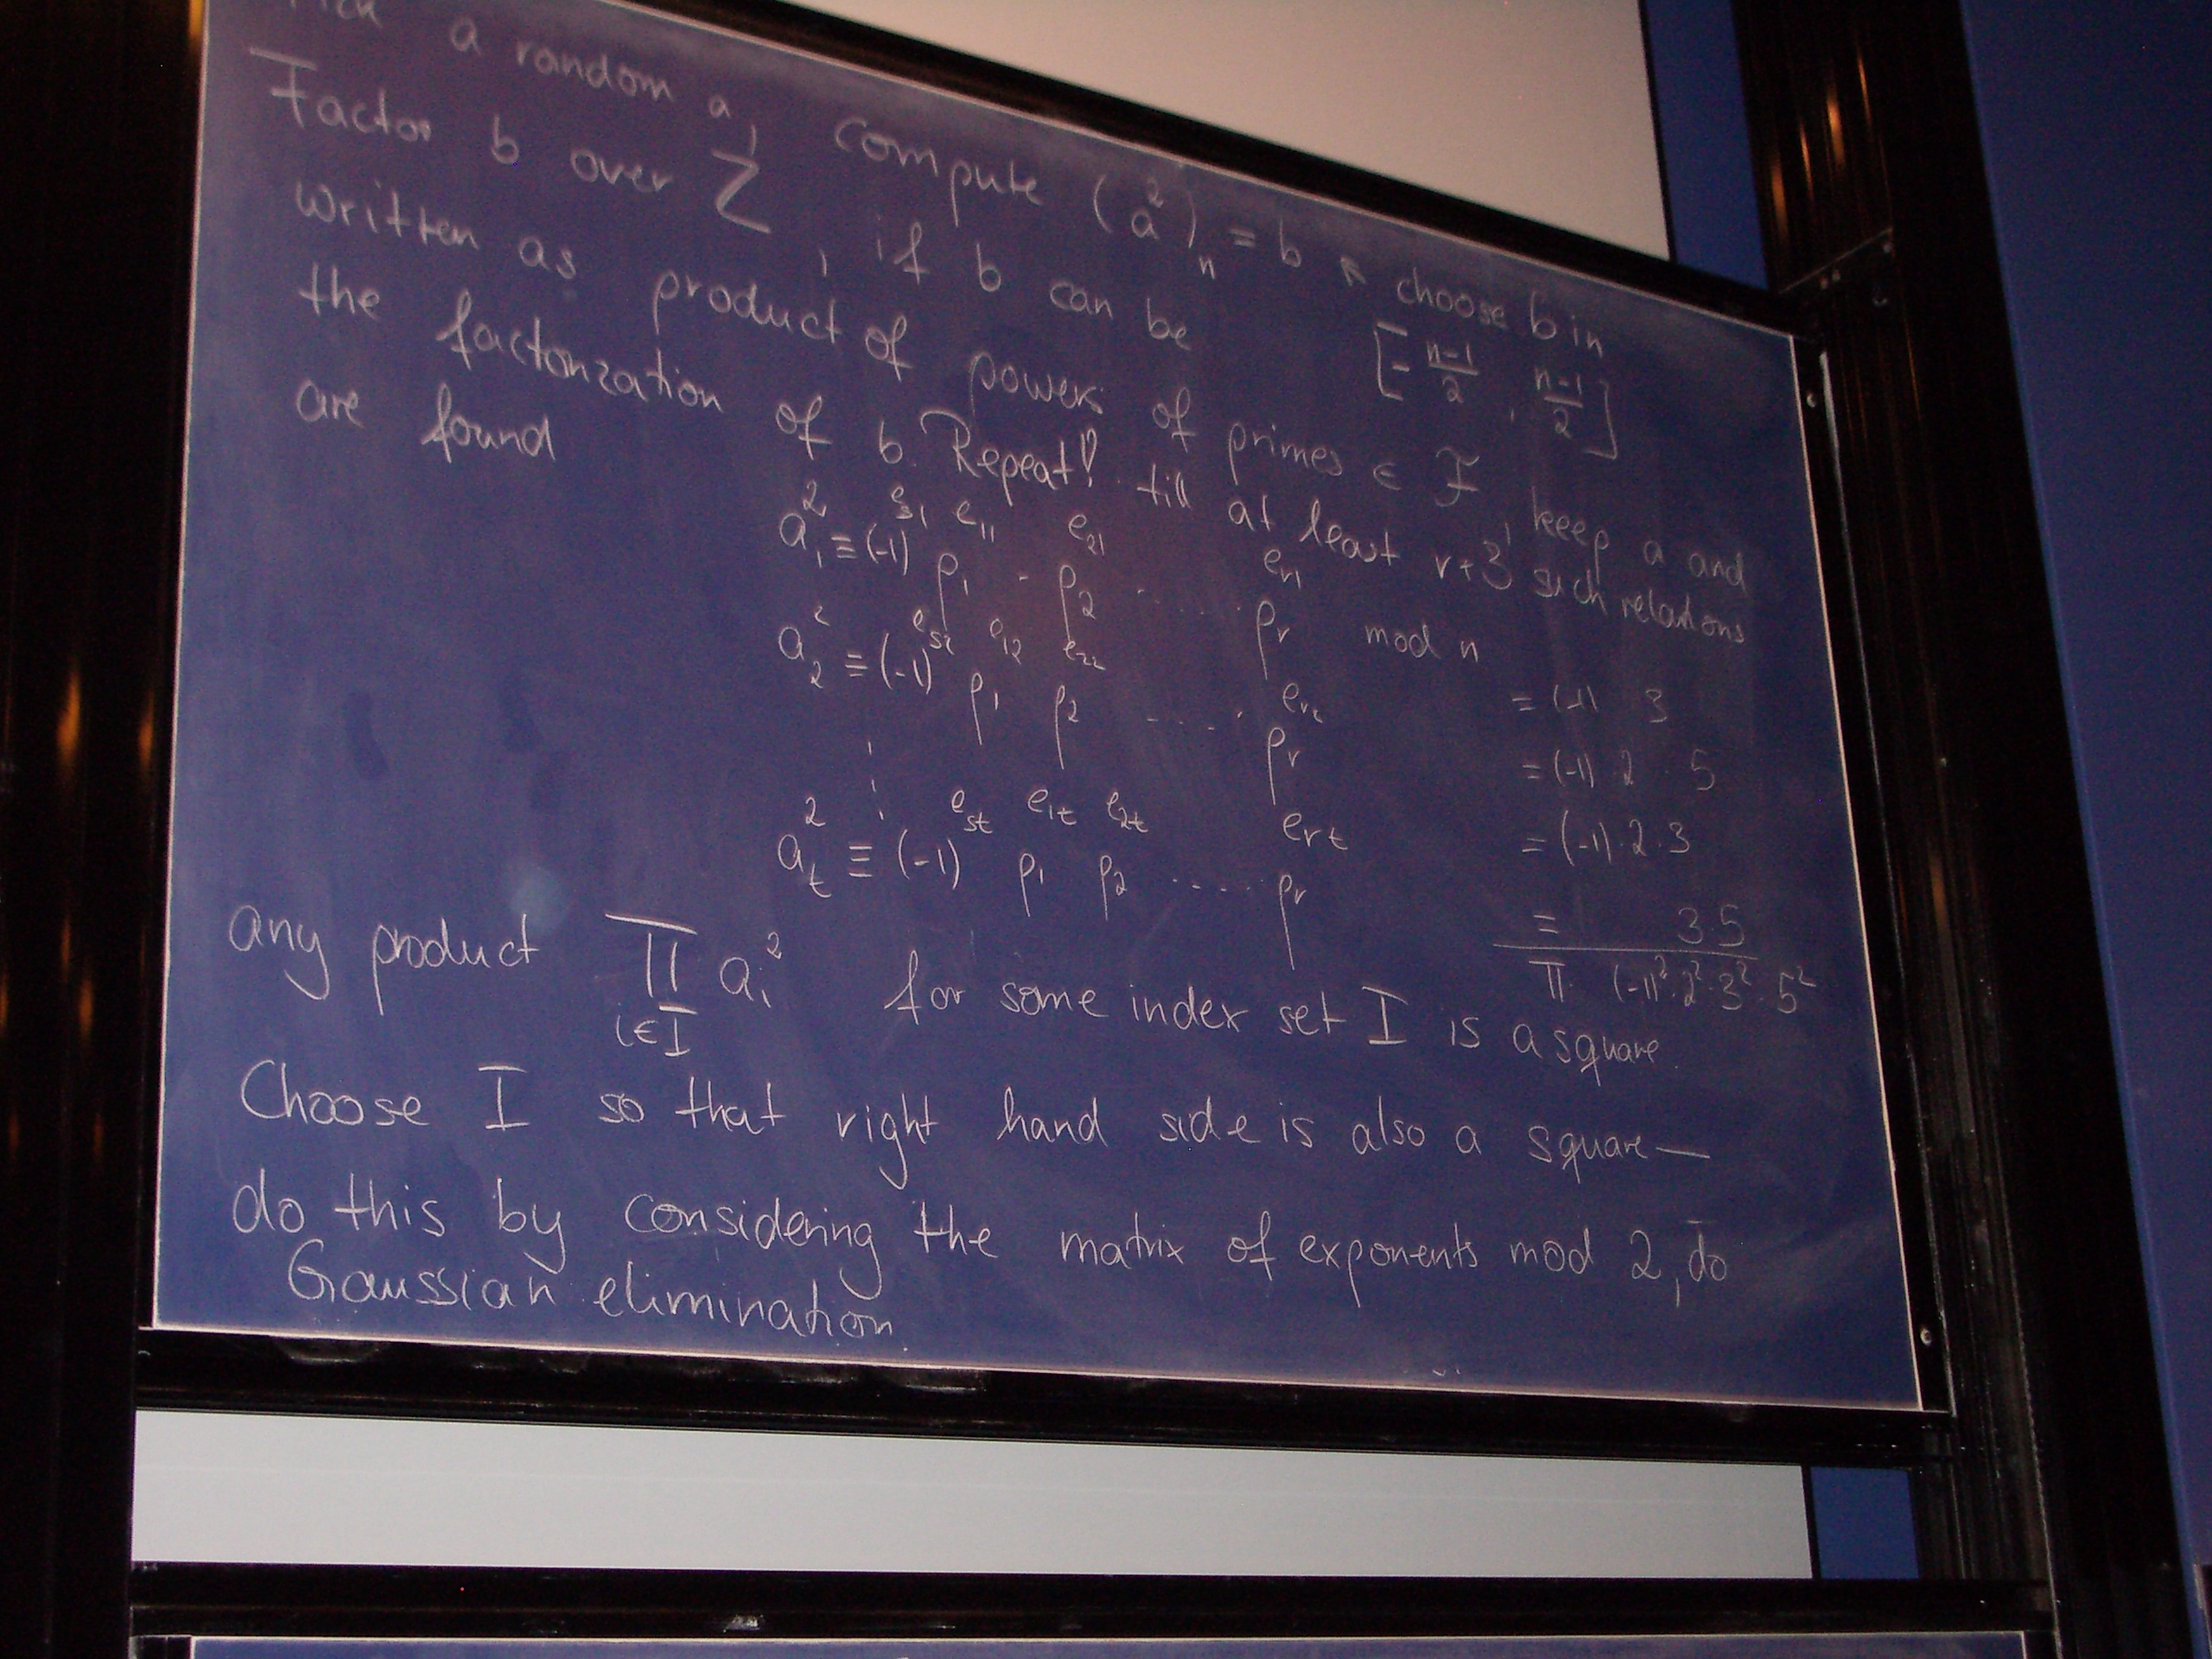 Pick a random a, compute (a²)ₙ = b ↖ choose b in
Factor b over Z, if b can be [-(n-1)/2, (n-1)/2]
written as product of powers of primes ∈ F, keep a and
the factorization of b. Repeat! till at least r+3 such relations
are found
a₁² ≡ (-1)^{e_{s1}} p₁^{e_{11}} · p₂^{e_{21}} ..... p_r^{e_{r1}} mod n
a₂² ≡ (-1)^{e_{s2}} p₁^{e_{12}} p₂^{e_{22}} ..... p_r^{e_{r2}} = (-1) 3
⋮ = (-1) 2 · 5
a_t² ≡ (-1)^{e_{st}} p₁^{e_{1t}} p₂^{e_{2t}} ..... p_r^{e_{rt}} = (-1)·2·3
= 3·5
any product ∏_{i∈I} a_i² for some index set I is a square
∏ (-1)²·2²·3²·5²
Choose I so that right hand side is also a square —
do this by considering the matrix of exponents mod 2, do
Gaussian elimination